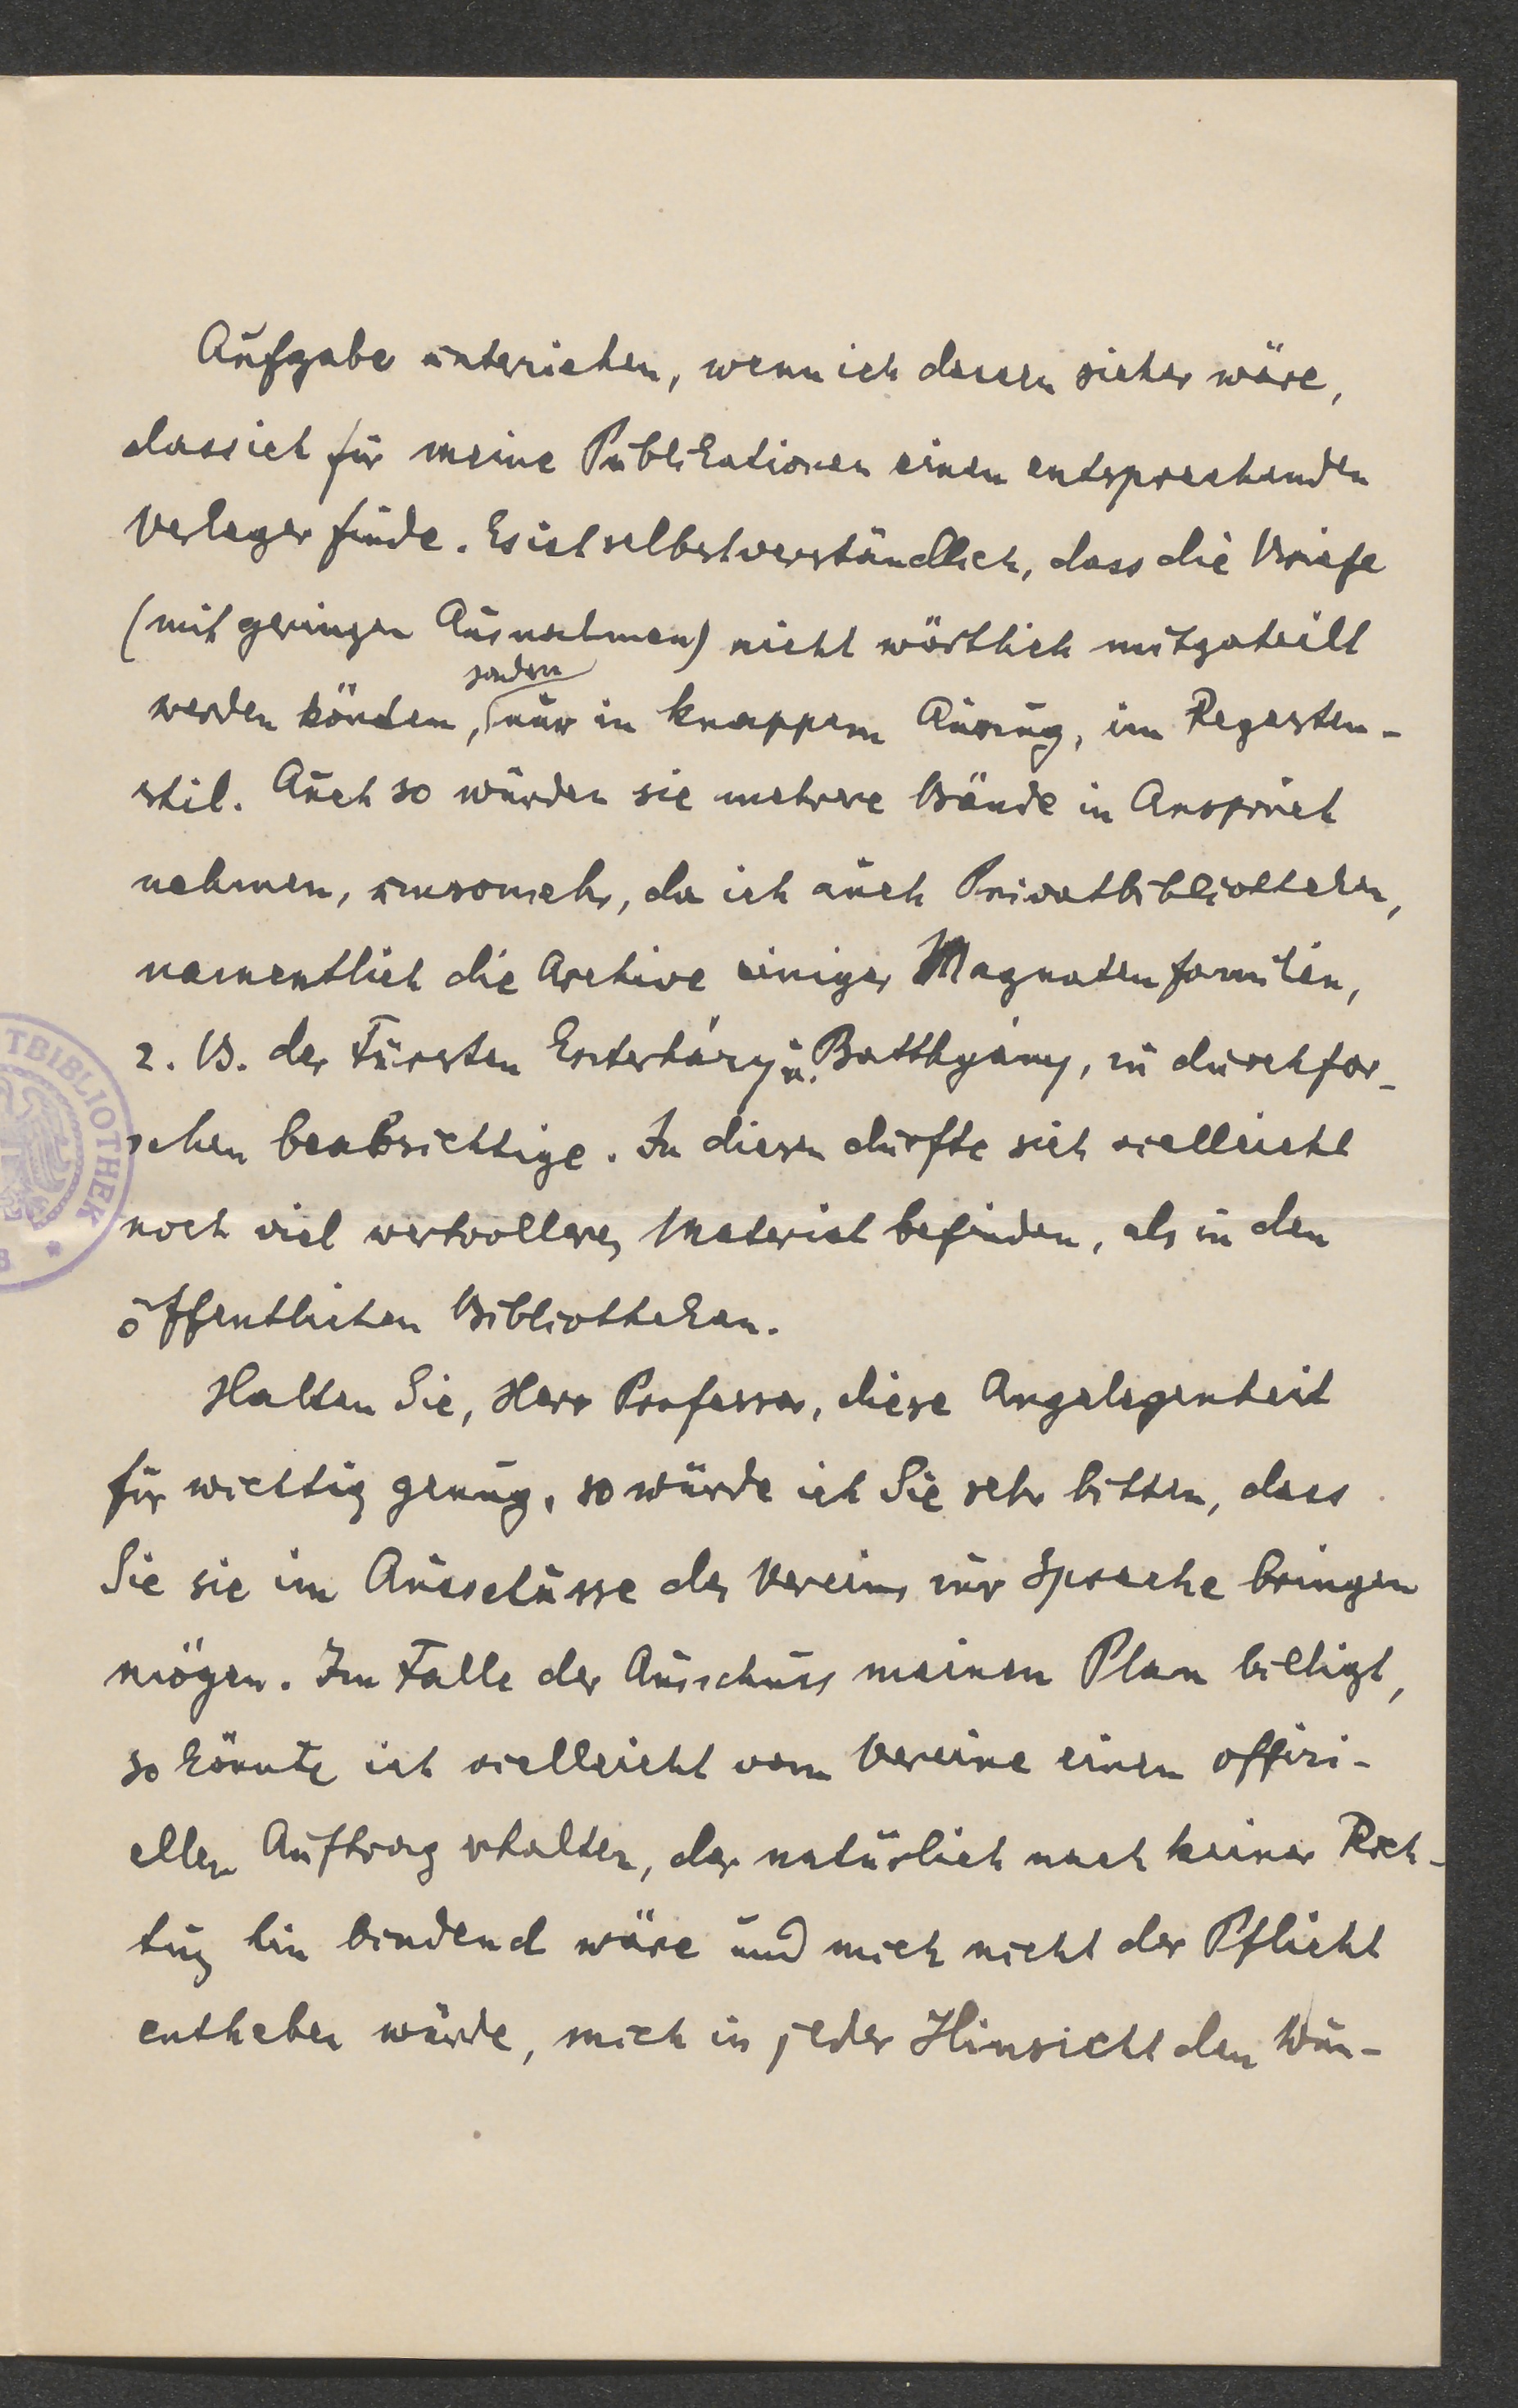 Aufgabe unterziehen, wenn ich dessen sicher wäre,
dass ich für meine Publikationen einen entsprechenden
Verleger finde. Es ist selbstverständlich, dass die Briefe
(mit geringen Ausnahmen) nicht wörtlich mitgeteilt
sondern
werden könnten, nur in knappem Auszug, im Regesten-
stil. Auch so würden sie mehrere Bände in Anspruch
nehmen, umsomehr, da ich auch Privatbibliotheken,
namentlich die Archive einiger Magnatenfamilien,
z. B. der Fürsten Eszterházy u. Batthyány, zu durchfor-
schen beabsichtige. In diesen dürfte sich vielleicht
noch viel wertvolleres Material befinden, als in den
öffentlichen Bibliotheken.
Halten Sie, Herr Professor, diese Angelegenheit
für wichtig genug, so würde ich Sie sehr bitten, dass
Sie sie im Ausschusse des Vereins zur Sprache bringen
mögen. Im Falle der Ausschuss meinen Plan billigt,
so könnte ich vielleicht vom Vereine einen offizi-
ellen Auftrag erhalten, der natürlich nach keiner Rich-
tug hin bindend wäre und mich nicht der Pflicht
entheben würde, mich in jeder Hinsicht den Wün-
TBIBLIOTHEK